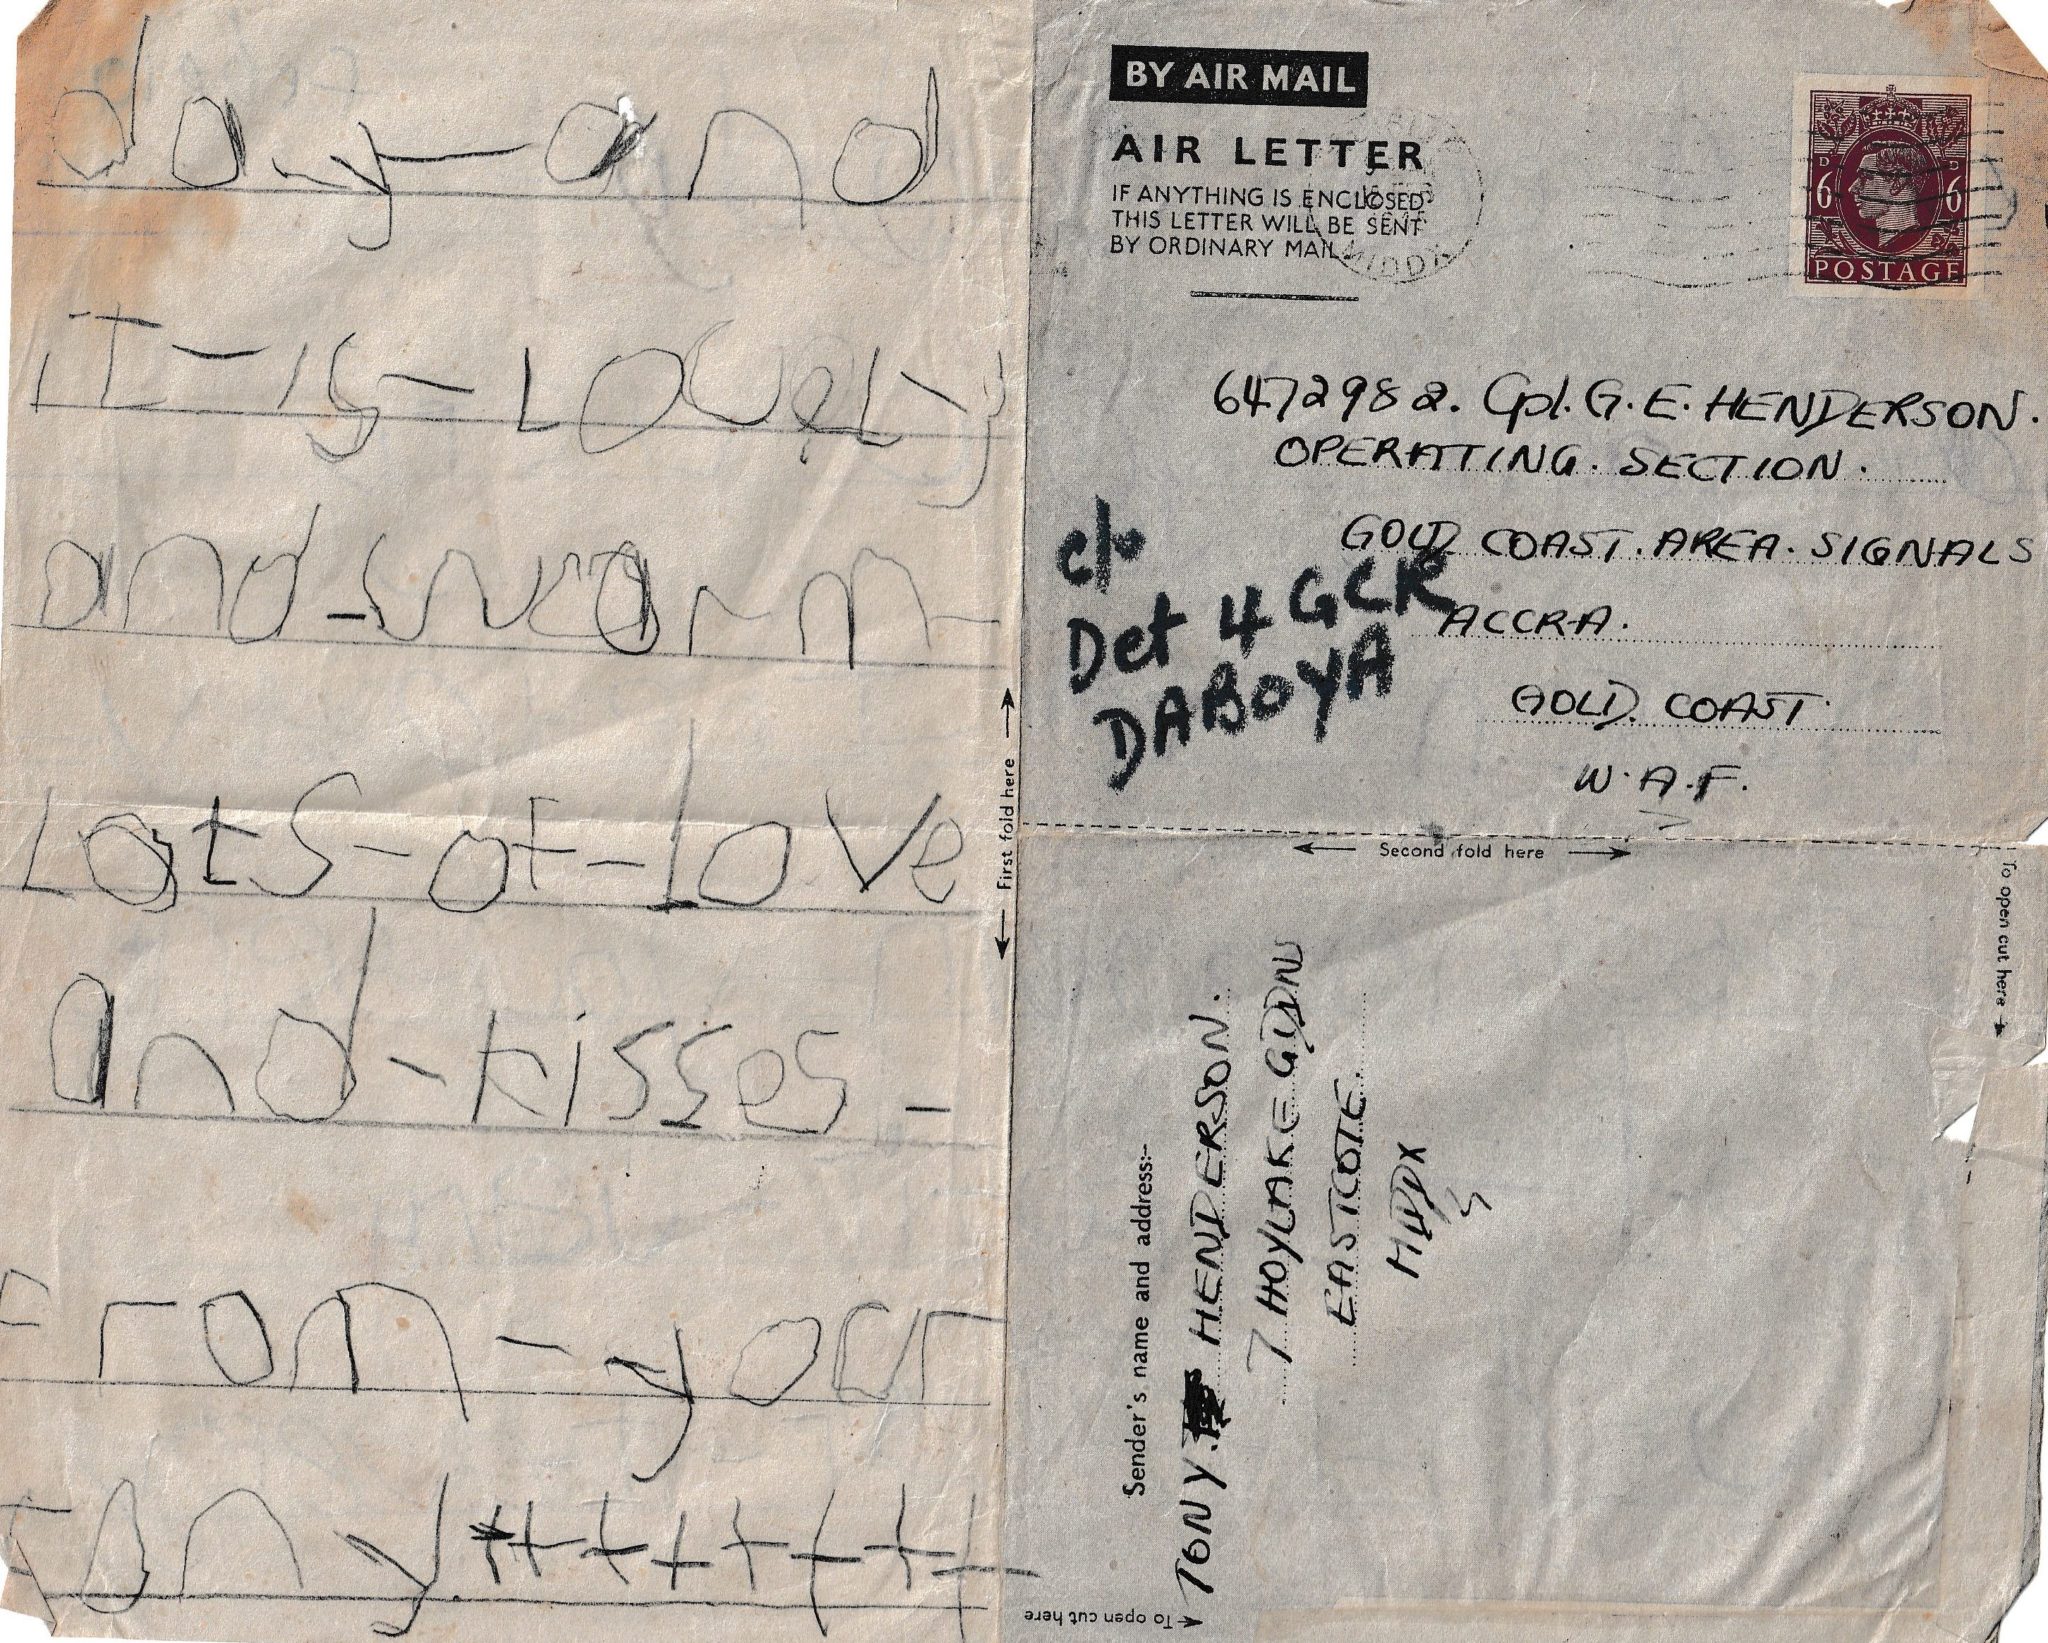 day-and
it-is-Lovely
and-warm-
Lots-of-Love
and-kisses-
From-your
Tony.++++++++
First fold here
BY AIR MAIL
AIR LETTER
IF ANYTHING IS ENCLOSED
THIS LETTER WILL BE SENT
BY ORDINARY MAIL.
D 6 D 6
POSTAGE
6472982. Cpl. G. E. HENDERSON.
OPERATING. SECTION.
GOLD COAST. AREA. SIGNALS
ACCRA.
GOLD. COAST.
W. A. F.
c/o
Det 4 GCR
DABOYA
Second fold here
To open cut here
Sender's name and address:-
TONY. HENDERSON.
7 HOYLAKE GDNS
EASTCOTE.
MIDDX
To open cut here